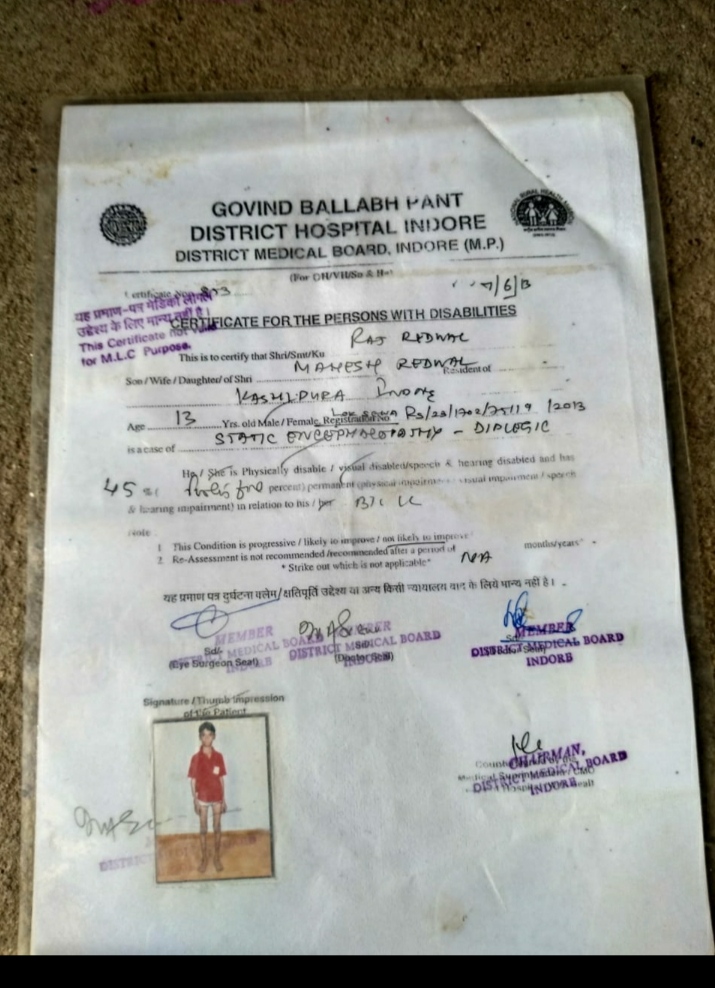 GOVIND BALLABH PANT
DISTRICT HOSPITAL INDORE
DISTRICT MEDICAL BOARD, INDORE (M.P.)
(For DH/VH/So &
/6/13
यह प्रमाण-पत्र मेडिको लीगल
उद्देश्य के लिए मान्य नहीं है।
This Certificate not
for M.L.C Purpose.
CERTIFICATE FOR THE PERSONS WITH DISABILITIES
This is to certify that Shri/Smt/Ku RAJ REDWAL
Son / Wife / Daughter of Shri MAHESH REDWAL Resident of
KASHIPURA INDORE
Age 13 Yrs. old Male / Female, Registration No
/2013
is a case of STATIC ENCEPHALOPATHY - DIPLEGIC
He / She is Physically disable / visual disabled/speech & hearing disabled and has
45 % ( percent) permanent (physical impairment / visual impairment / speech
& hearing impairment) in relation to his / her
Note
1 This Condition is progressive / likely to improve / not likely to improve
2. Re-Assessment is not recommended /recommended after a period of NA months/years*
* Strike out which is not applicable*
यह प्रमाण पत्र दुर्घटना क्लेम/क्षतिपूर्ति उद्देश्य या अन्य किसी न्यायालय वाद के लिये मान्य नहीं है।
MEMBER
MEDICAL BOARD
INDORE
Sd/-
(Eye Surgeon Seal)
MEMBER
DISTRICT MEDICAL BOARD
INDORE
MEMBER
DISTRICT MEDICAL BOARD
INDORE
Signature / Thumb Impression
of The Patient
CHAIRMAN,
DISTRICT MEDICAL BOARD
INDORE
DISTRICT